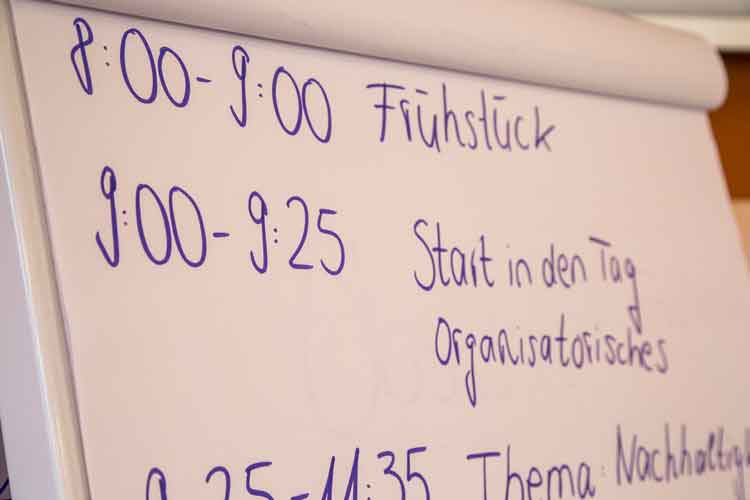 8:00-9:00 Frühstück
9:00-9:25 Start in den Tag
Organisatorisches
9:25-11:35 Thema: